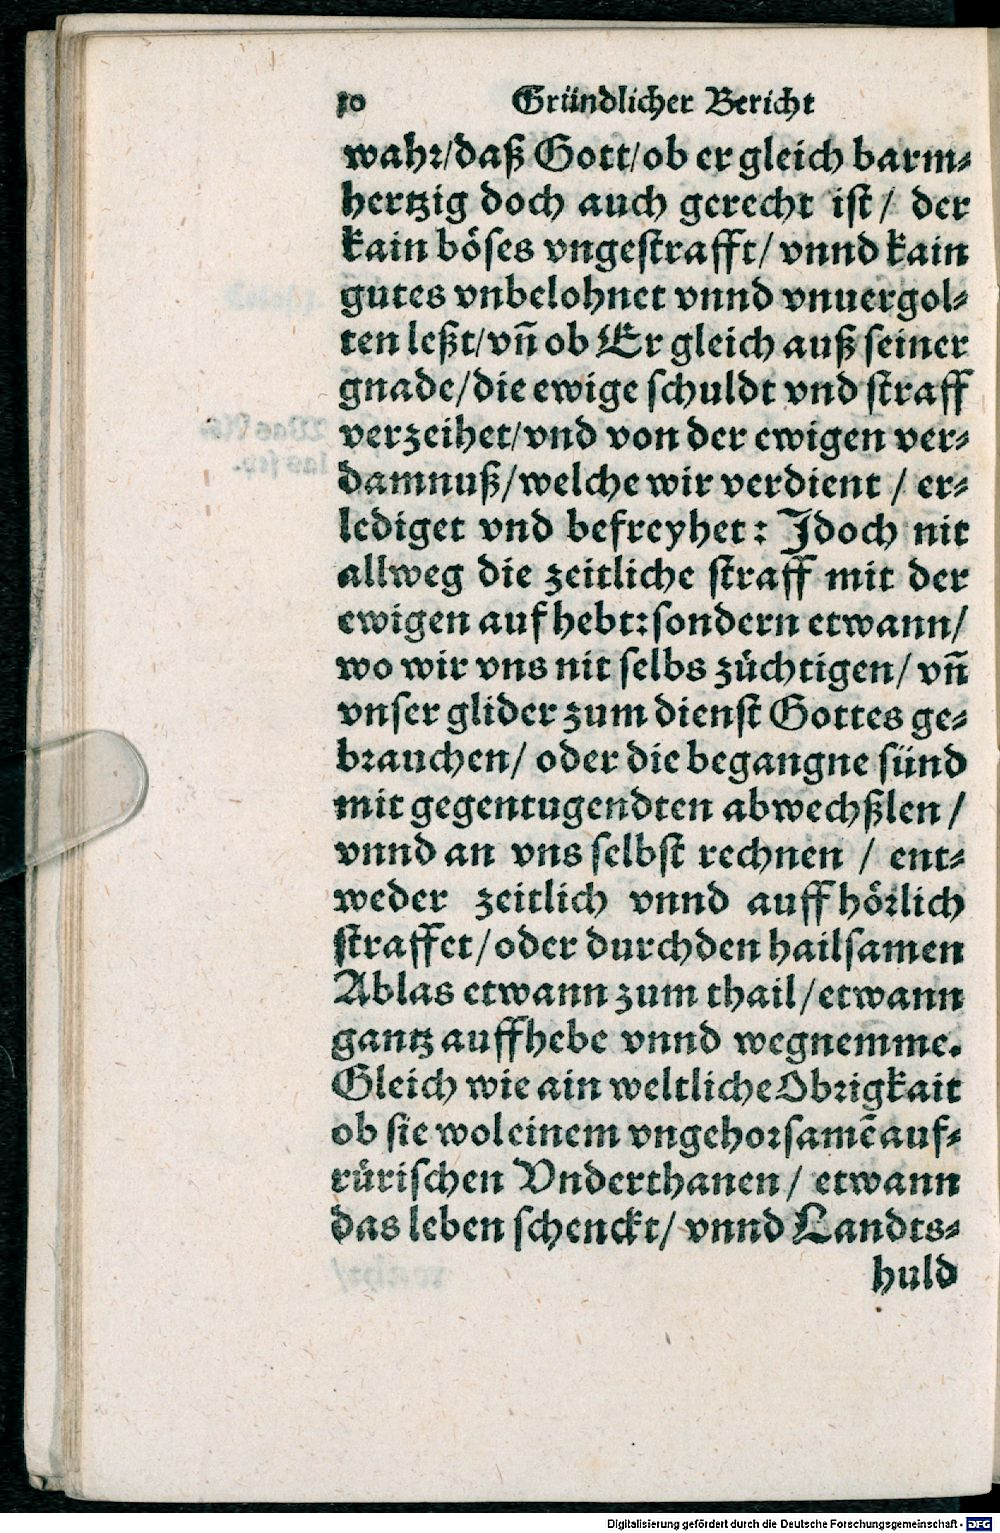 10 Gründlicher Bericht
wahr/daß Gott/ob er gleich barm⸗
hertzig doch auch gerecht ist/ der
kain böses vngestrafft/ vnnd kain
gutes vnbelohnet vnnd vnuergol⸗
ten leßt/vñ ob Er gleich auß seiner
gnade/die ewige schuldt vnd straff
verzeihet/vnd von der ewigen ver⸗
damnuß/welche wir verdient / er⸗
lediget vnd befreyhet: Jdoch nit
allweg die zeitliche straff mit der
ewigen aufhebt:sondern etwann/
wo wir vns nit selbs züchtigen/ vñ
vnser glider zum dienst Gottes ge⸗
brauchen/ oder die begangne sünd
mit gegentugendten abwechßlen /
vnnd an vns selbst rechnen / ent⸗
weder zeitlich vnnd auffhörlich
straffet/oder durch den hailsamen
Ablas etwann zum thail/etwann
gantz auffhebe vnnd wegnemme.
Gleich wie ain weltliche Obrigkait
ob sie wol einem vngehorsamẽ auf⸗
rürischen Vnderthanen/ etwann
das leben schenckt/ vnnd Landts⸗
huld
Digitalisierung gefördert durch die Deutsche Forschungsgemeinschaft - DFG